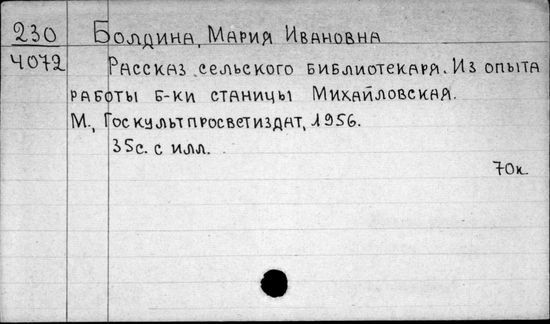 230 Болдина, Мария Ивановна
4072 Рассказ сельского библиотекаря. Из опыта
работы б-ки станицы Михайловская.
М., Госкультпросветиздат, 1956.
35с. с илл.
70к